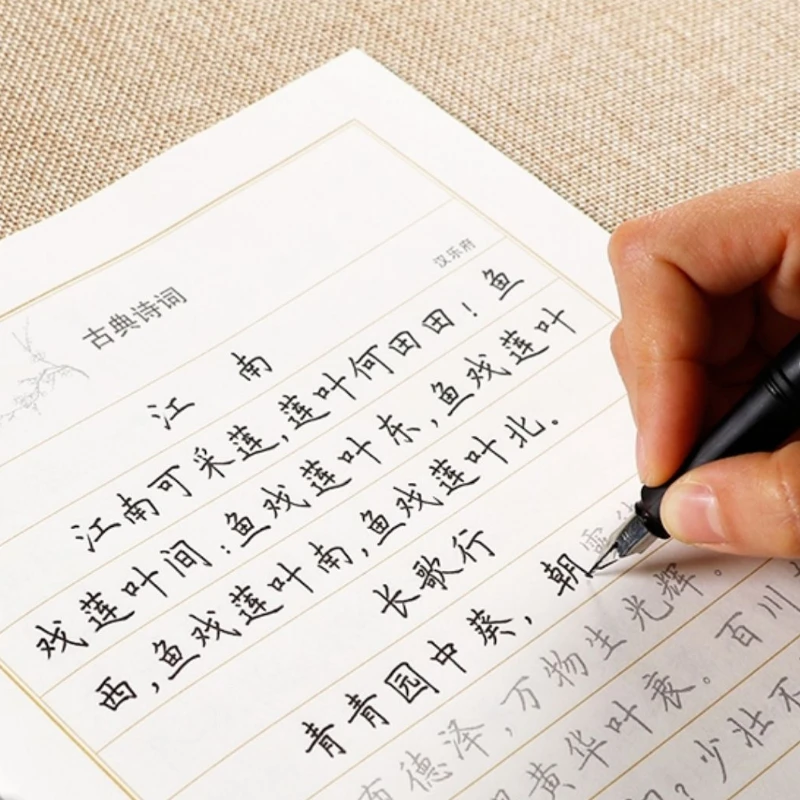 古典诗词
汉乐府
江 南
江南可采莲,莲叶何田田!鱼
戏莲叶间:鱼戏莲叶东,鱼戏莲叶
西,鱼戏莲叶南,鱼戏莲叶北。
长歌行
青青园中葵,朝露
布德泽,万物生光辉。
黄华叶衰。百川
?少壮不